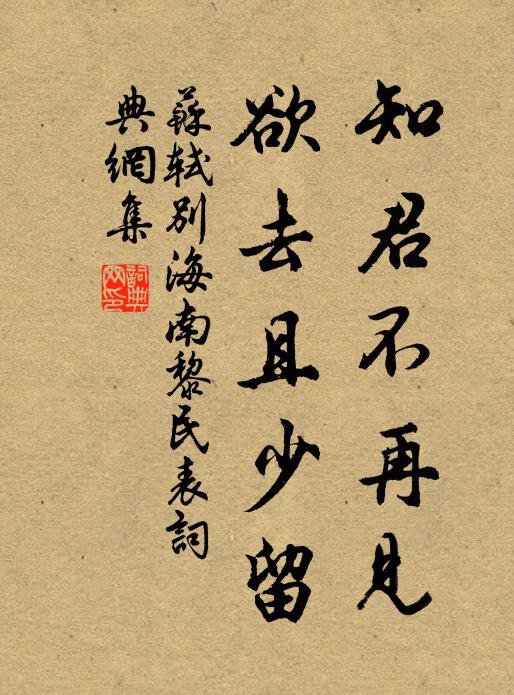 知君不再見
欲去且少留
蘇軾別海南黎民表詞
典網集
詞典網印